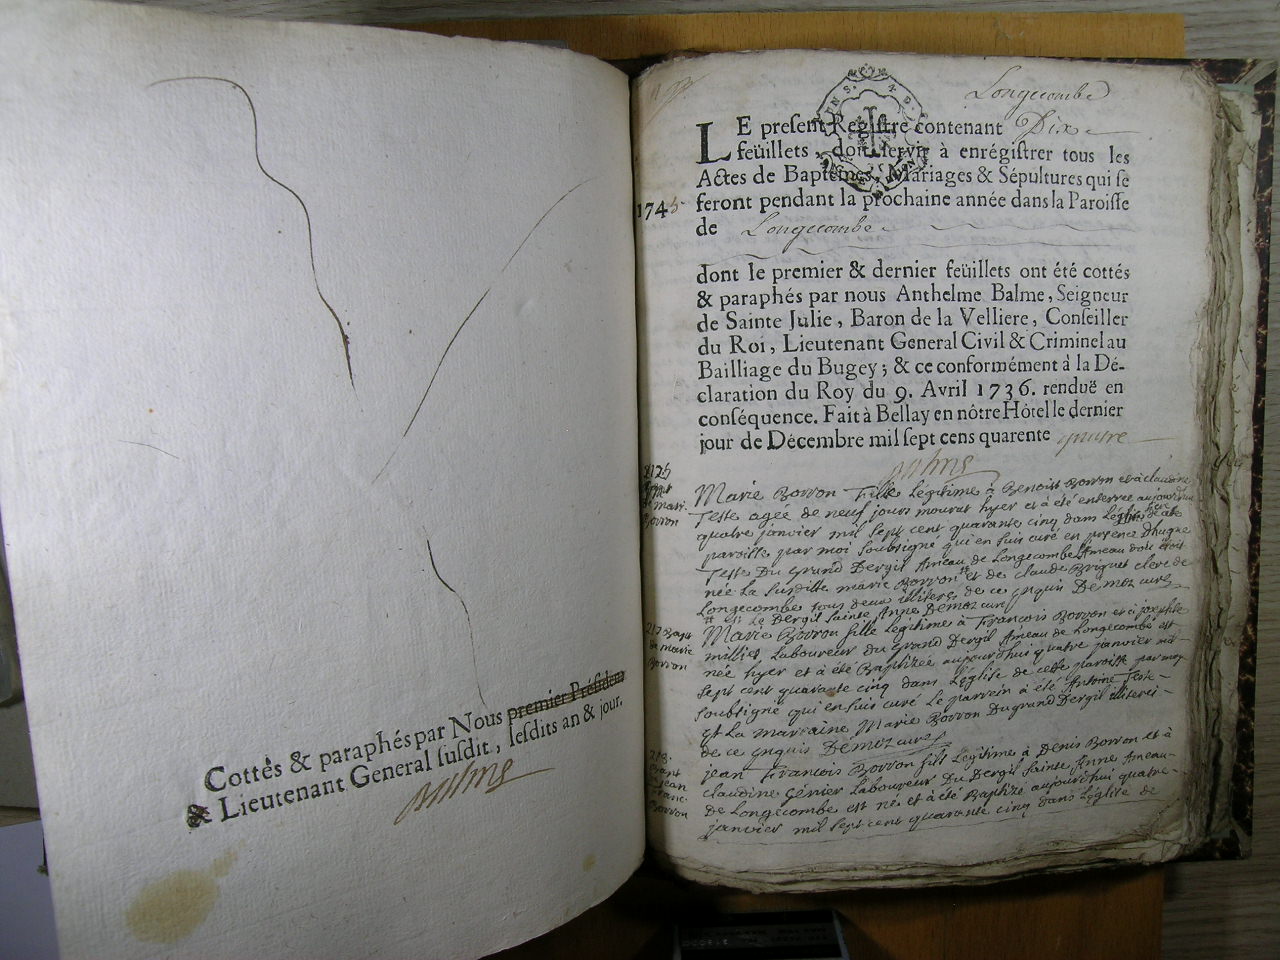 Cottés & paraphés par Nous premier Président
& Lieutenant General susdit, lesdits an & jour.
Longecombe
LE present Registre contenant Dix
feüillets, doit servir à enrégistrer tous les
Actes de Baptêmes, Mariages & Sépultures qui se
feront pendant la prochaine année dans la Paroisse
1745
de Longecombe
dont le premier & dernier feüillets ont été cottés
& paraphés par nous Anthelme Balme, Seigneur
de Sainte Julie, Baron de la Velliere, Conseiller
du Roi, Lieutenant General Civil & Criminel au
Bailliage du Bugey; & ce conformément à la Dé-
claration du Roy du 9. Avril 1736. renduë en
conséquence. Fait à Bellay en nôtre Hôtel le dernier
jour de Décembre mil sept cens quarente quatre
de marie
Borron
Marie Borron Fille Légitime à Benoist Borron et à claudine
Teste agée de neuf jours mourut hyer et à été enterree aujourdhui
quatre janvier mil sept cent quarante cinq dans Léglise de
paroisse par moi soubsigné qui en suis curé en presence Dhugue
Teste Du Grand Dergil Ameau de Longecombe Ameau doù étoit
née La susditte marie Borron et de claude Briguet clerc de
Longecombe tous deux illiteres de ce enquis Demoz curé
et Le Dergil Sainte Anne Demoz curé
217 Bapt
de marie
Borron
Marie Borron fille Légitime à François Borron et à josephte
milliet Laboureur du Grand Dergil Ameau de Longecombe est
née hyer et à été Baptizée aujourdhui quatre janvier mil
sept cent quarante cinq dans Léglise de cette paroisse par moy
soubsigné qui en suis curé Le parrein à été Antoine Teste
et La marraine Marie Borron Du grand Dergil illiterei
de ce enquis Démoz curé
218.
Bapt
jean
Franc.
Borron
jean François Borron fils Légitime à Denis Borron et à
claudine Génier Laboureur Du Dergil Sainte Anne Ameau
De Longecombe est né et à été Baptizé aujourdhui quatre
janvier mil sept cent quarante cinq dans Léglise de